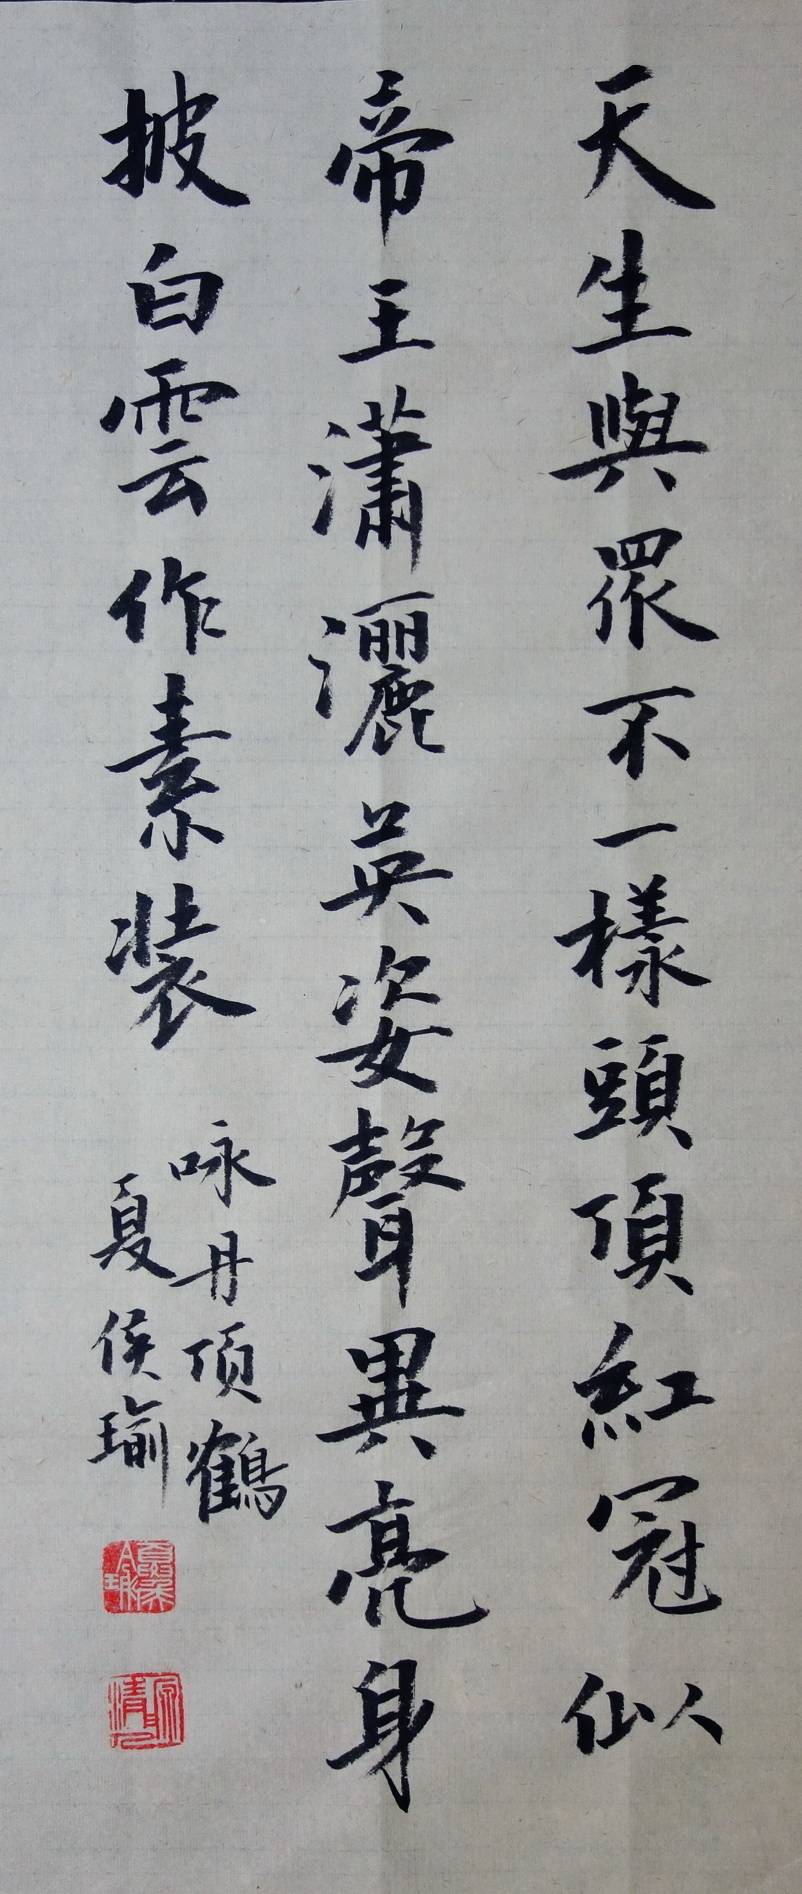 天生與眾不一樣頭頂紅冠似
帝王瀟灑英姿聲異亮身
披白雲作素裝
咏丹頂鶴
夏侯瑜
夏侯瑜